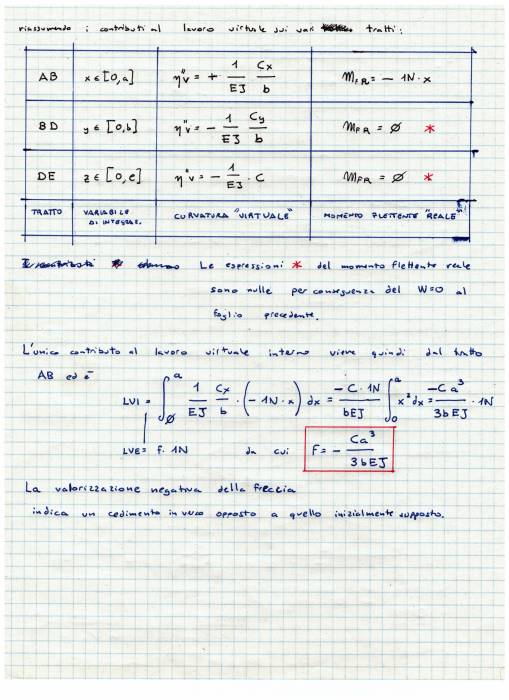 riassumendo i contributi al lavoro virtuale sui vari tratti:
AB x ∈ [0,a] η"v = + 1/EJ Cx/b MFR = - 1N·x
BD y ∈ [0,b] η"v = - 1/EJ Cy/b MFR = ∅ *
DE z ∈ [0,e] η"v = - 1/EJ · C MFR = ∅ *
TRATTO VARIABILE DI INTEGRAZ. CURVATURA "VIRTUALE" MOMENTO FLETTENTE "REALE"
Le espressioni * del momento flettente reale
sono nulle per conseguenza del W=0 al
foglio precedente.
L'unico contributo al lavoro virtuale interno viene quindi dal tratto
AB ed è
LVI = ∫∅^a 1/EJ Cx/b · (-1N·x) dx = -C·1N/bEJ ∫0^a x² dx = -Ca³/3bEJ · 1N
LVE = f· 1N da cui F = - Ca³/3bEJ
La valorizzazione negativa della freccia
indica un cedimento in verso opposto a quello inizialmente supposto.